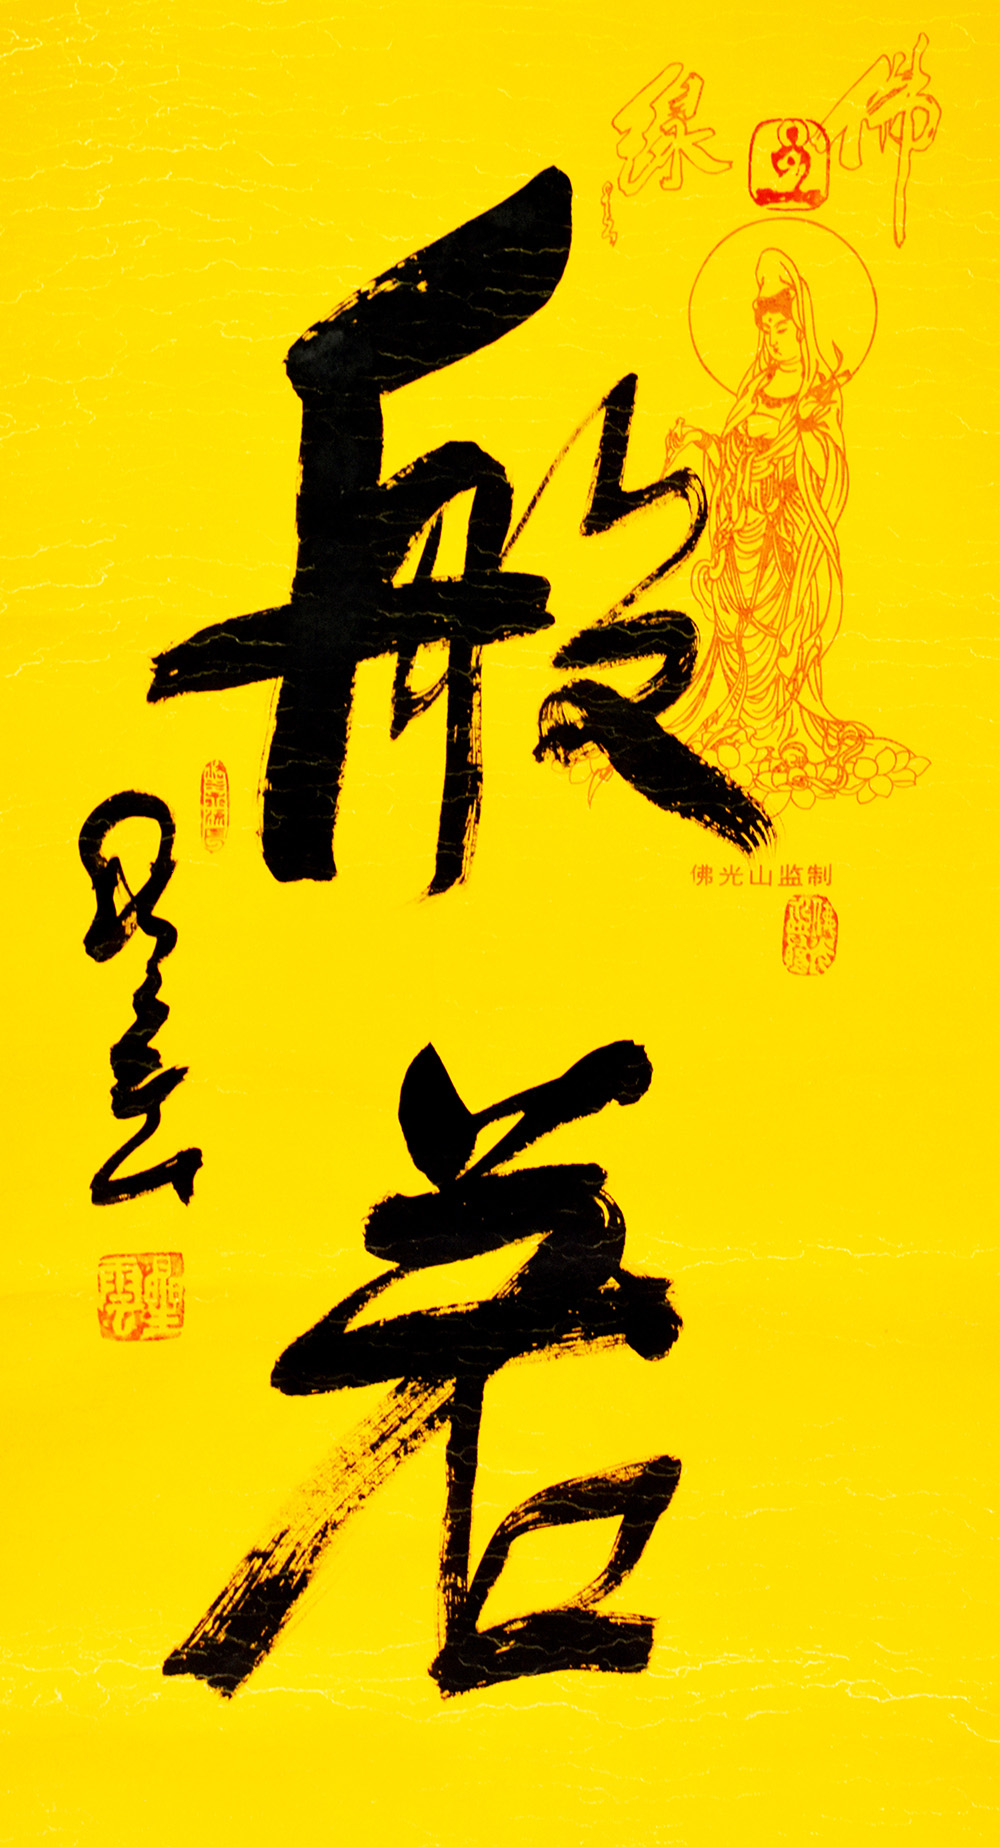 佛緣
般若
佛光山监制
星雲
星雲